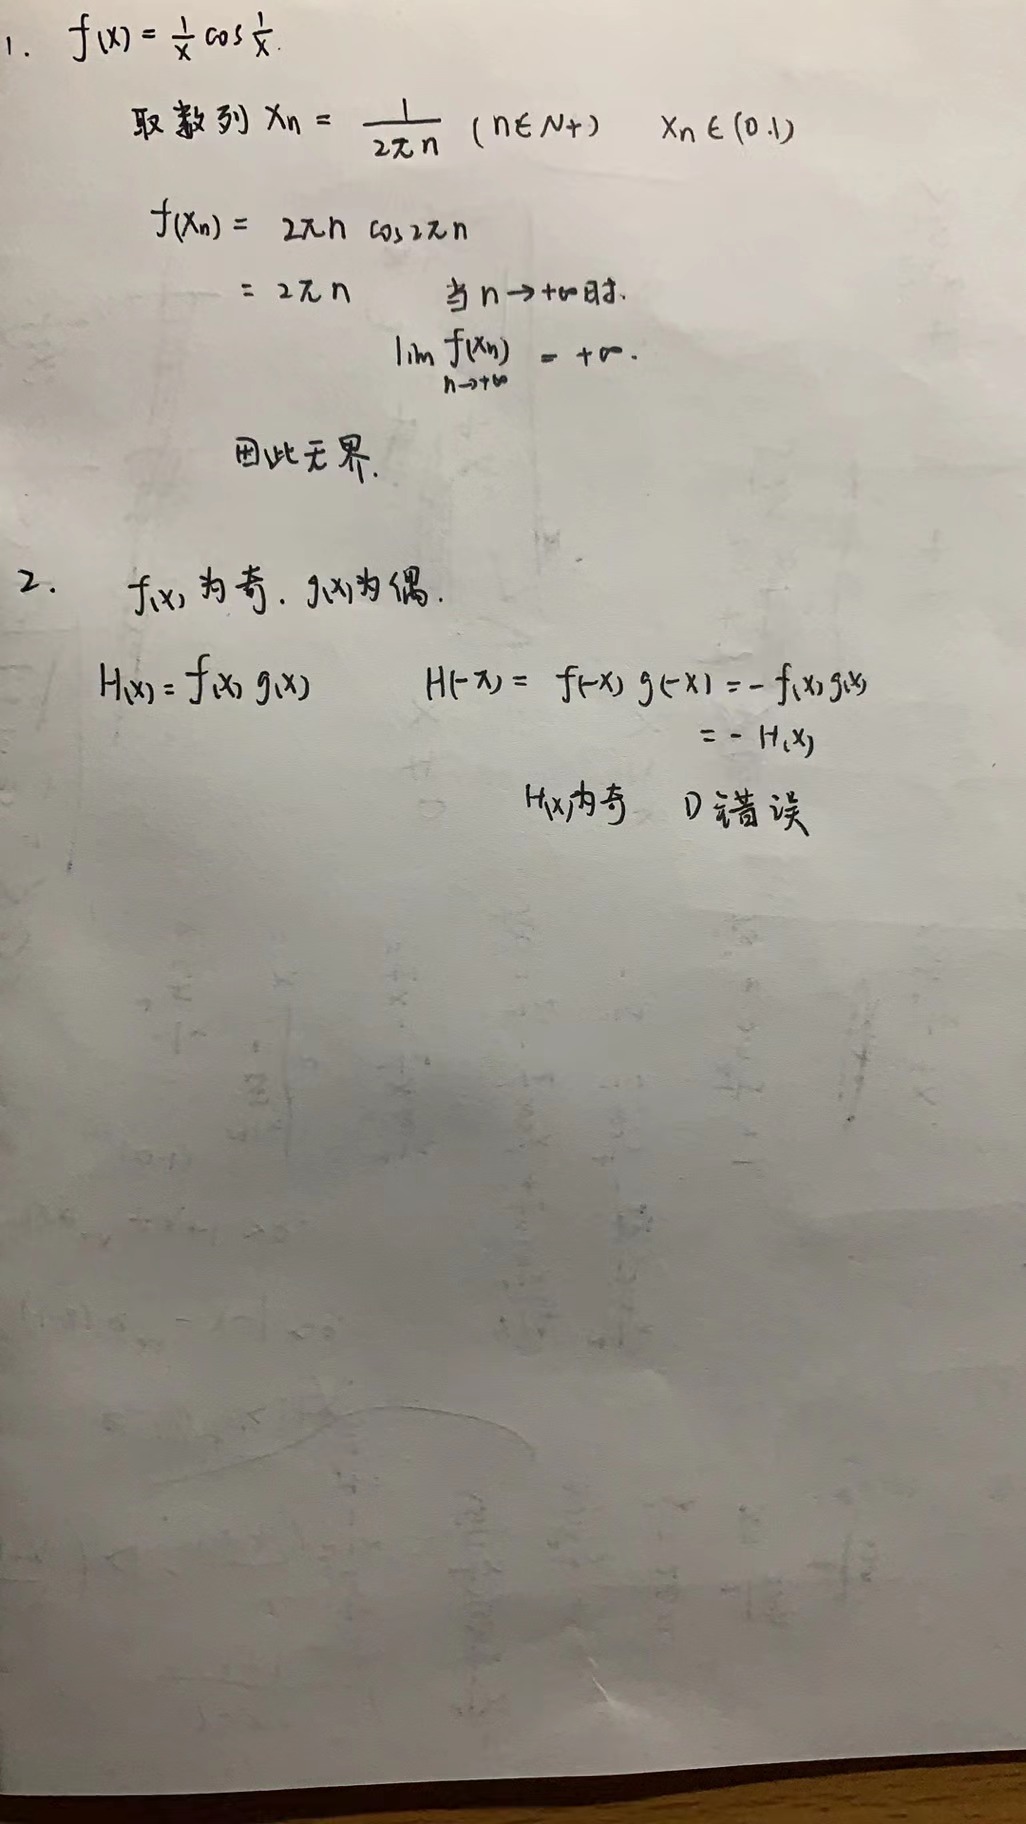 1. f(x) = 1/x cos 1/x.
取数列 xn = 1/2πn (n∈N+) xn∈(0.1)
f(xn) = 2πn cos2πn
= 2πn 当n→+∞时.
lim f(xn) = +∞.
n→+∞
因此无界.
2. f(x)为奇. g(x)为偶.
H(x) = f(x) g(x) H(-x) = f(-x) g(-x) = - f(x) g(x)
= - H(x)
H(x)为奇 D错误